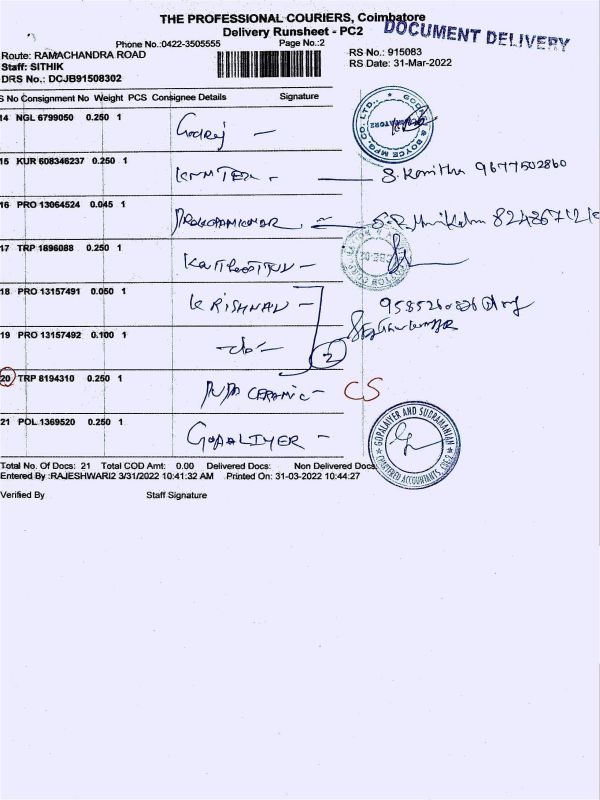 THE PROFESSIONAL COURIERS, Coimbatore
Delivery Runsheet - PC2
DOCUMENT DELIVERY
Phone No.:0422-3505555 Page No.:2
Route: RAMACHANDRA ROAD RS No.: 915083
Staff: SITHIK RS Date: 31-Mar-2022
DRS No.: DCJB91508302
S No Consignment No Weight PCS Consignee Details Signature
14 NGL 6799050 0.250 1 Godrej -
15 KUR 608346237 0.250 1 S. Kavitha 9677502860
16 PRO 13064524 0.045 1
17 TRP 1896088 0.250 1
18 PRO 13157491 0.050 1 KRISHNAN - 9585260836
19 PRO 13157492 0.100 1 -do- 2
20 TRP 8194310 0.250 1 CERAMIC - CS
21 POL 1369520 0.250 1 GOPALIYER -
GOPALAIYER AND SUBRAMANIAN
CHARTERED ACCOUNTANTS, CBE-2
Total No. Of Docs: 21 Total COD Amt: 0.00 Delivered Docs: Non Delivered Docs:
Entered By :RAJESHWARI2 3/31/2022 10:41:32 AM Printed On: 31-03-2022 10:44:27
Verified By Staff Signature